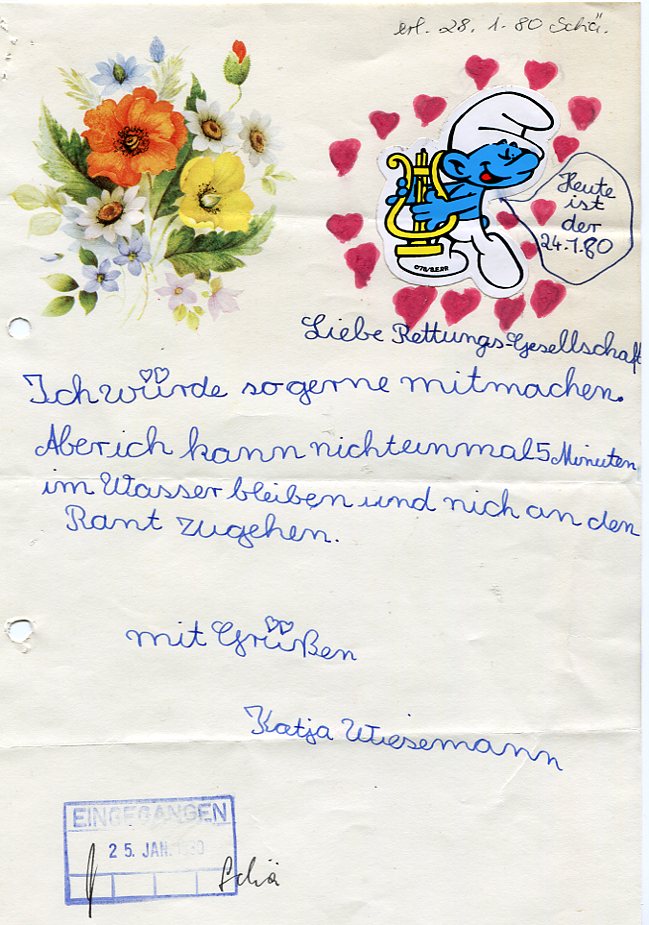 erl. 28. 1. 80 Schä.
Heute
ist
der
24.1.80
Liebe Rettungs-Gesellschaft
Ich würde so gerne mitmachen.
Aber ich kann nicht einmal 5 Minuten
im Wasser bleiben und nich an den
Rant zugehen.
mit Grüßen
Katja Wiesemann
EINGEGANGEN
25. JAN. 1980
Schä